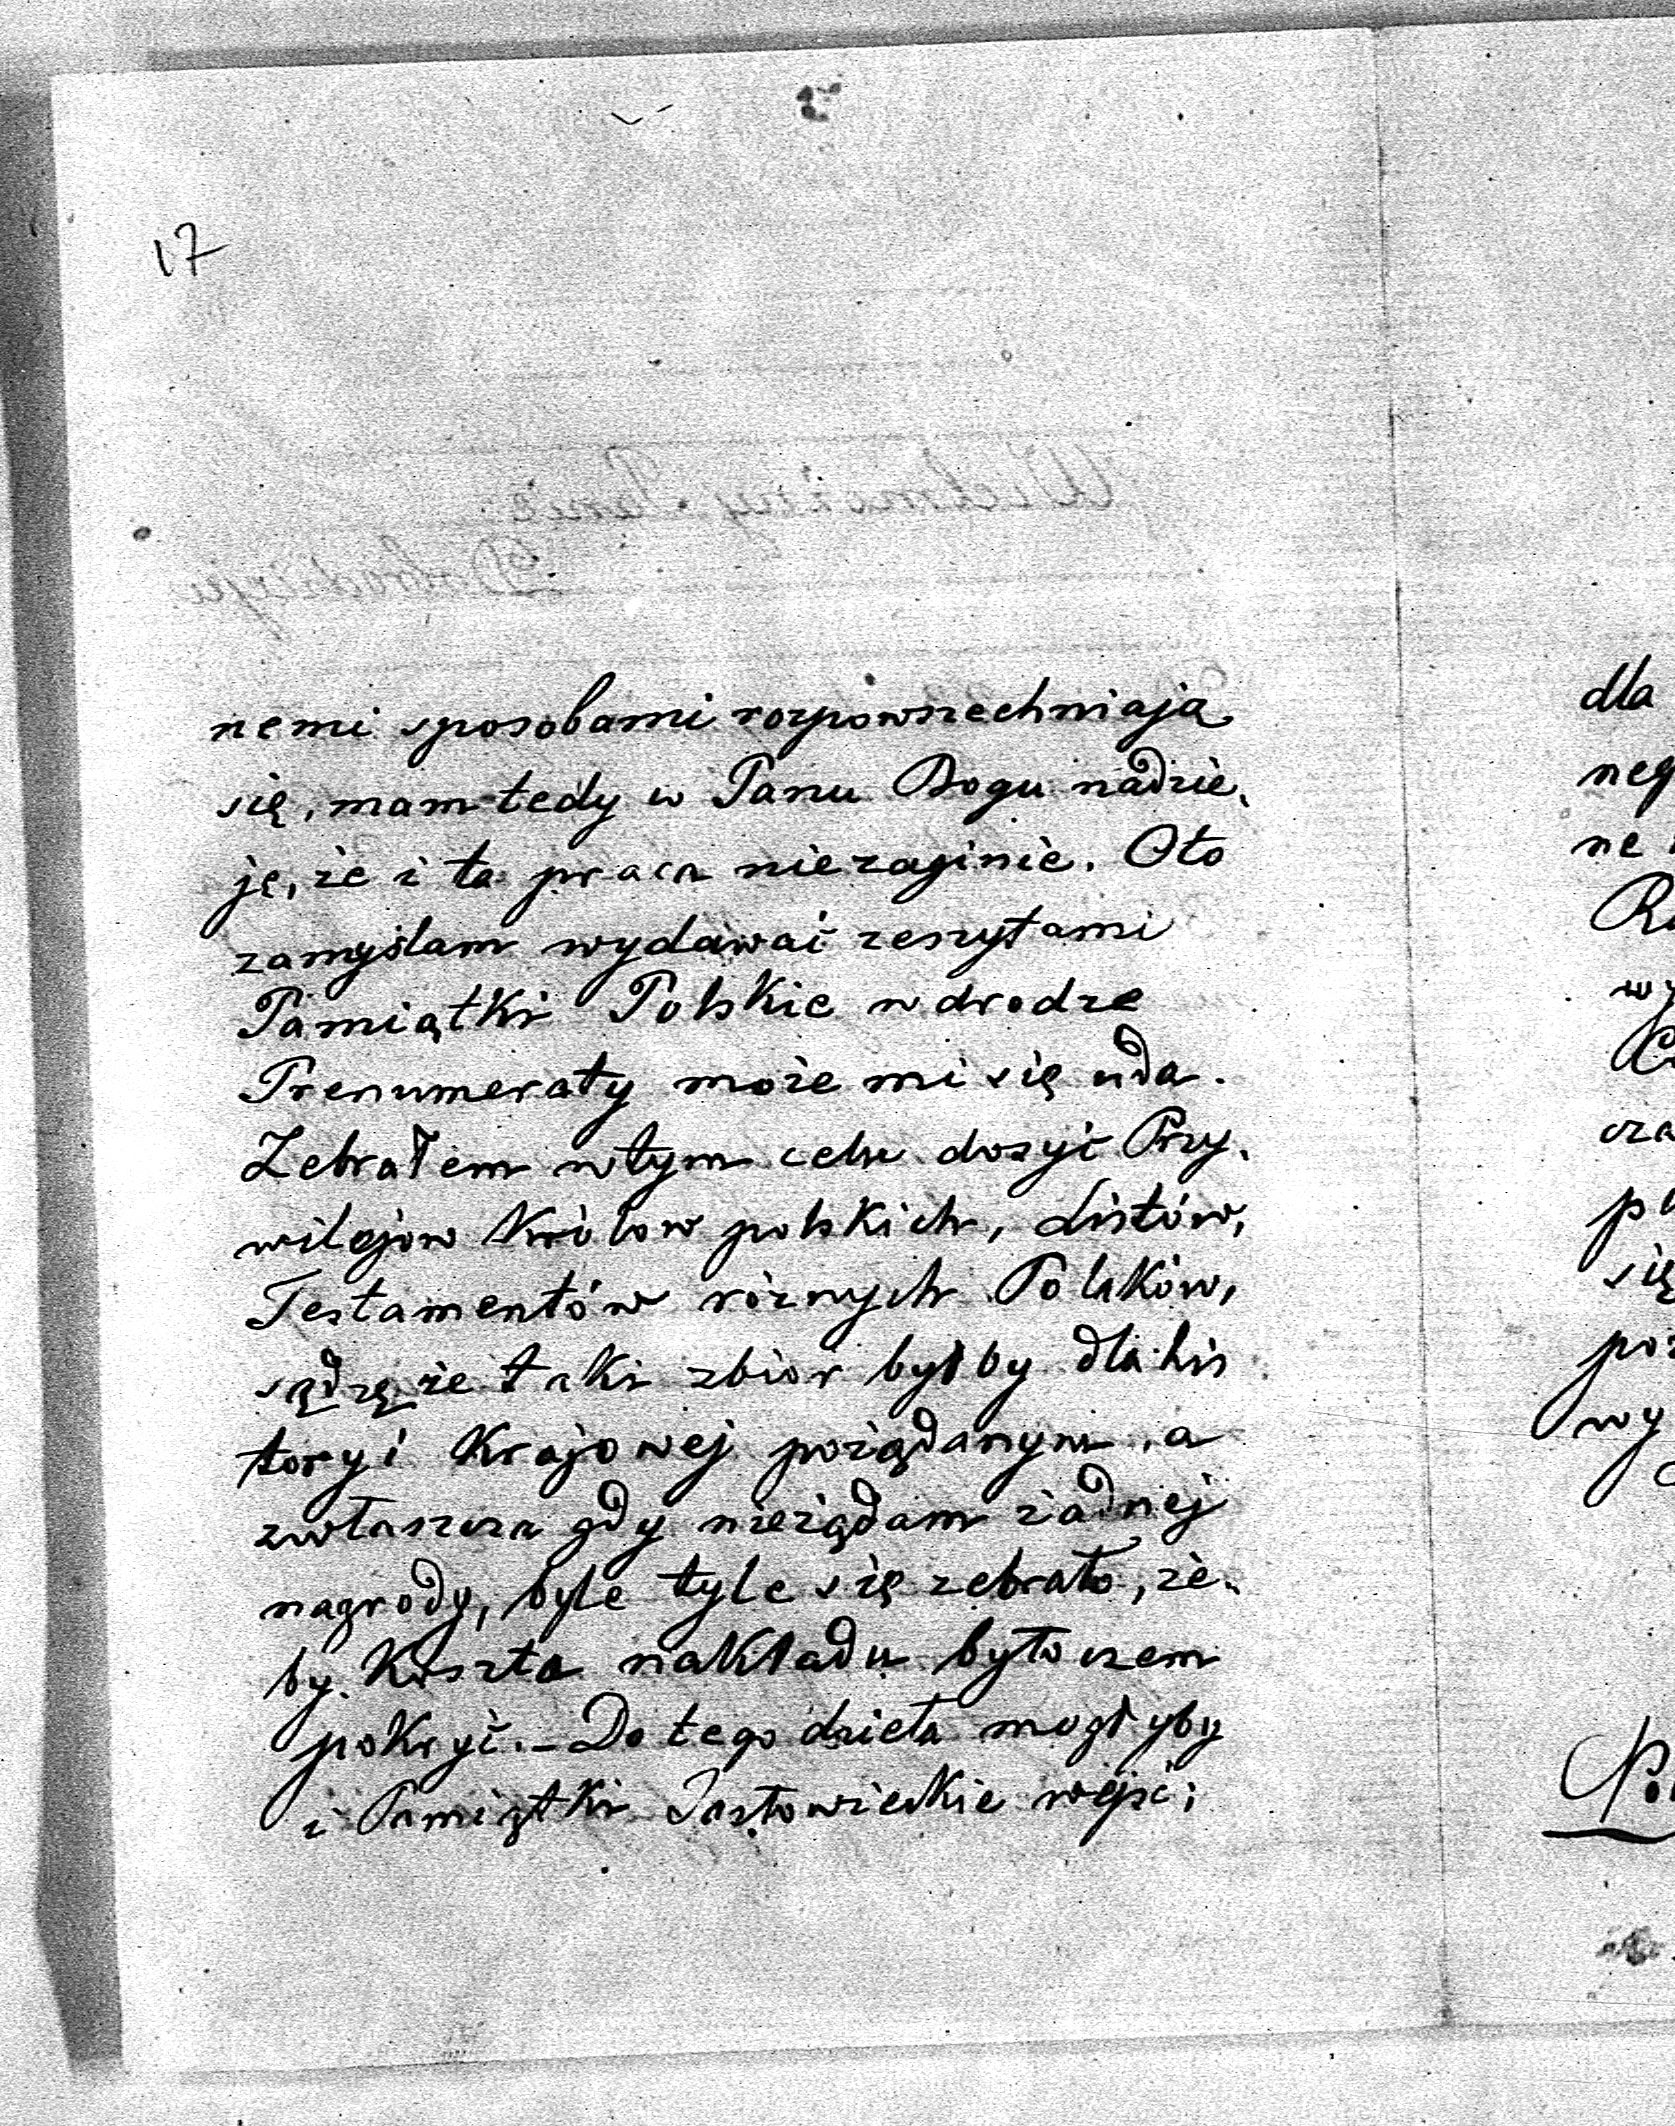 17
nemi sposobami rozpowszechniają
się, mam tedy w Panu Bogu nadzie,
ję, że i ta praca niezaginie. Oto
zamyślam wydawać zeszytami
Pamiątki Polskie w drodze
Prenumeraty może mi się uda.
Zebrałem w tym celu dosyć Przy,
wilejow Królow polskich, Listów,
Testamentów różnych Polaków,
sądzę że taki zbior byłby dla his
toryi Krajowej pożądanym, a
zwłaszcza gdy nieżądam żadnej
nagrody, byle tyle się zebrało, że,
by Koszta nakładu było czem
pokryć. – Do tego dzieła mogłyby
i Pamiątki Jasłowieckie wejść;
dla
neg
ne
wy
cza
pa
się
poż
wy